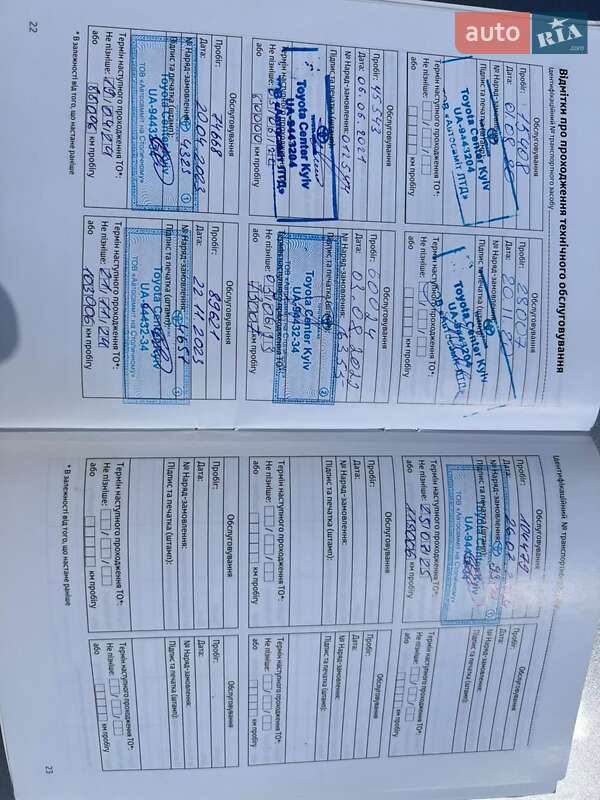 auto RIA .com
Відмітки про проходження технічного обслуговування
(ідентифікаційний № транспортного засобу
Обслуговування
Пробіг: 15408
Дата: 01.08.20
№ Наряд-замовлення:
Підпис та печатка (штамп):
Toyota Center Kyiv
UA-9443204
"В «Автосаміт ЛТД»
Термін наступного проходження ТО*:
Не пізніше:
або км пробігу
Обслуговування
Пробіг: 28007
Дата: 20.11.20
№ Наряд-замовлення:
Підпис та печатка (штамп):
Toyota Center Kyiv
UA-9443204
Термін наступного проходження ТО*:
Не пізніше:
або км пробігу
Обслуговування
Пробіг: 45543
Дата: 06.06.2021
№ Наряд-замовлення:
Підпис та печатка (штамп):
Toyota Center Kyiv
UA-9443204
"В «Автосаміт ЛТД»
Термін наступного проходження ТО*:
Не пізніше:
або 60000 км пробігу
Обслуговування
Пробіг: 60024
Дата: 03.08.2022
№ Наряд-замовлення:
Підпис та печатка (штамп):
Toyota Center Kyiv
UA-94432-34
ТОВ «Автосаміт на Столичному»
2
Термін наступного проходження ТО*:
Не пізніше:
або 75000 км пробігу
Обслуговування
Пробіг: 74668
Дата: 20.04.2023
№ Наряд-замовлення: 4385
Підпис та печатка (штамп):
Toyota Center Kyiv
UA-94432-34
ТОВ «Автосаміт на Столичному»
1
Термін наступного проходження ТО*:
Не пізніше: 19/04/24
або км пробігу
Обслуговування
Пробіг: 89621
Дата: 22.11.2023
№ Наряд-замовлення: 4657
Підпис та печатка (штамп):
Toyota Center Kyiv
UA-94432-34
ТОВ «Автосаміт на Столичному»
1
Термін наступного проходження ТО*:
Не пізніше: 21/11/24
або 103000 км пробігу
* В залежності від того, що настане раніше
22
(ідентифікаційний № транспортного
Обслуговування
Пробіг: 104479
Дата: 26.07.
№ Наряд-замовлення:
Підпис та печатка (штамп):
Toyota Center Kyiv
ТОВ «Автосаміт на Столичному»
Термін наступного проходження ТО*:
Не пізніше: 25/07/25
або 118000 км пробігу
Обслуговування
Пробіг:
Дата:
№ Наряд-замовлення:
Підпис та печатка (штамп):
Термін наступного проходження ТО*:
Не пізніше:
або км пробігу
Обслуговування
Пробіг:
Дата:
№ Наряд-замовлення:
Підпис та печатка (штамп):
Термін наступного проходження ТО*:
Не пізніше:
або км пробігу
Обслуговування
Пробіг:
Дата:
№ Наряд-замовлення:
Підпис та печатка (штамп):
Термін наступного проходження ТО*:
Не пізніше:
або км пробігу
Обслуговування
Пробіг:
Дата:
№ Наряд-замовлення:
Підпис та печатка (штамп):
Термін наступного проходження ТО*:
Не пізніше:
або км пробігу
Обслуговування
Пробіг:
Дата:
№ Наряд-замовлення:
Підпис та печатка (штамп):
Термін наступного проходження ТО*:
Не пізніше:
або км пробігу
* В залежності від того, що настане раніше
23